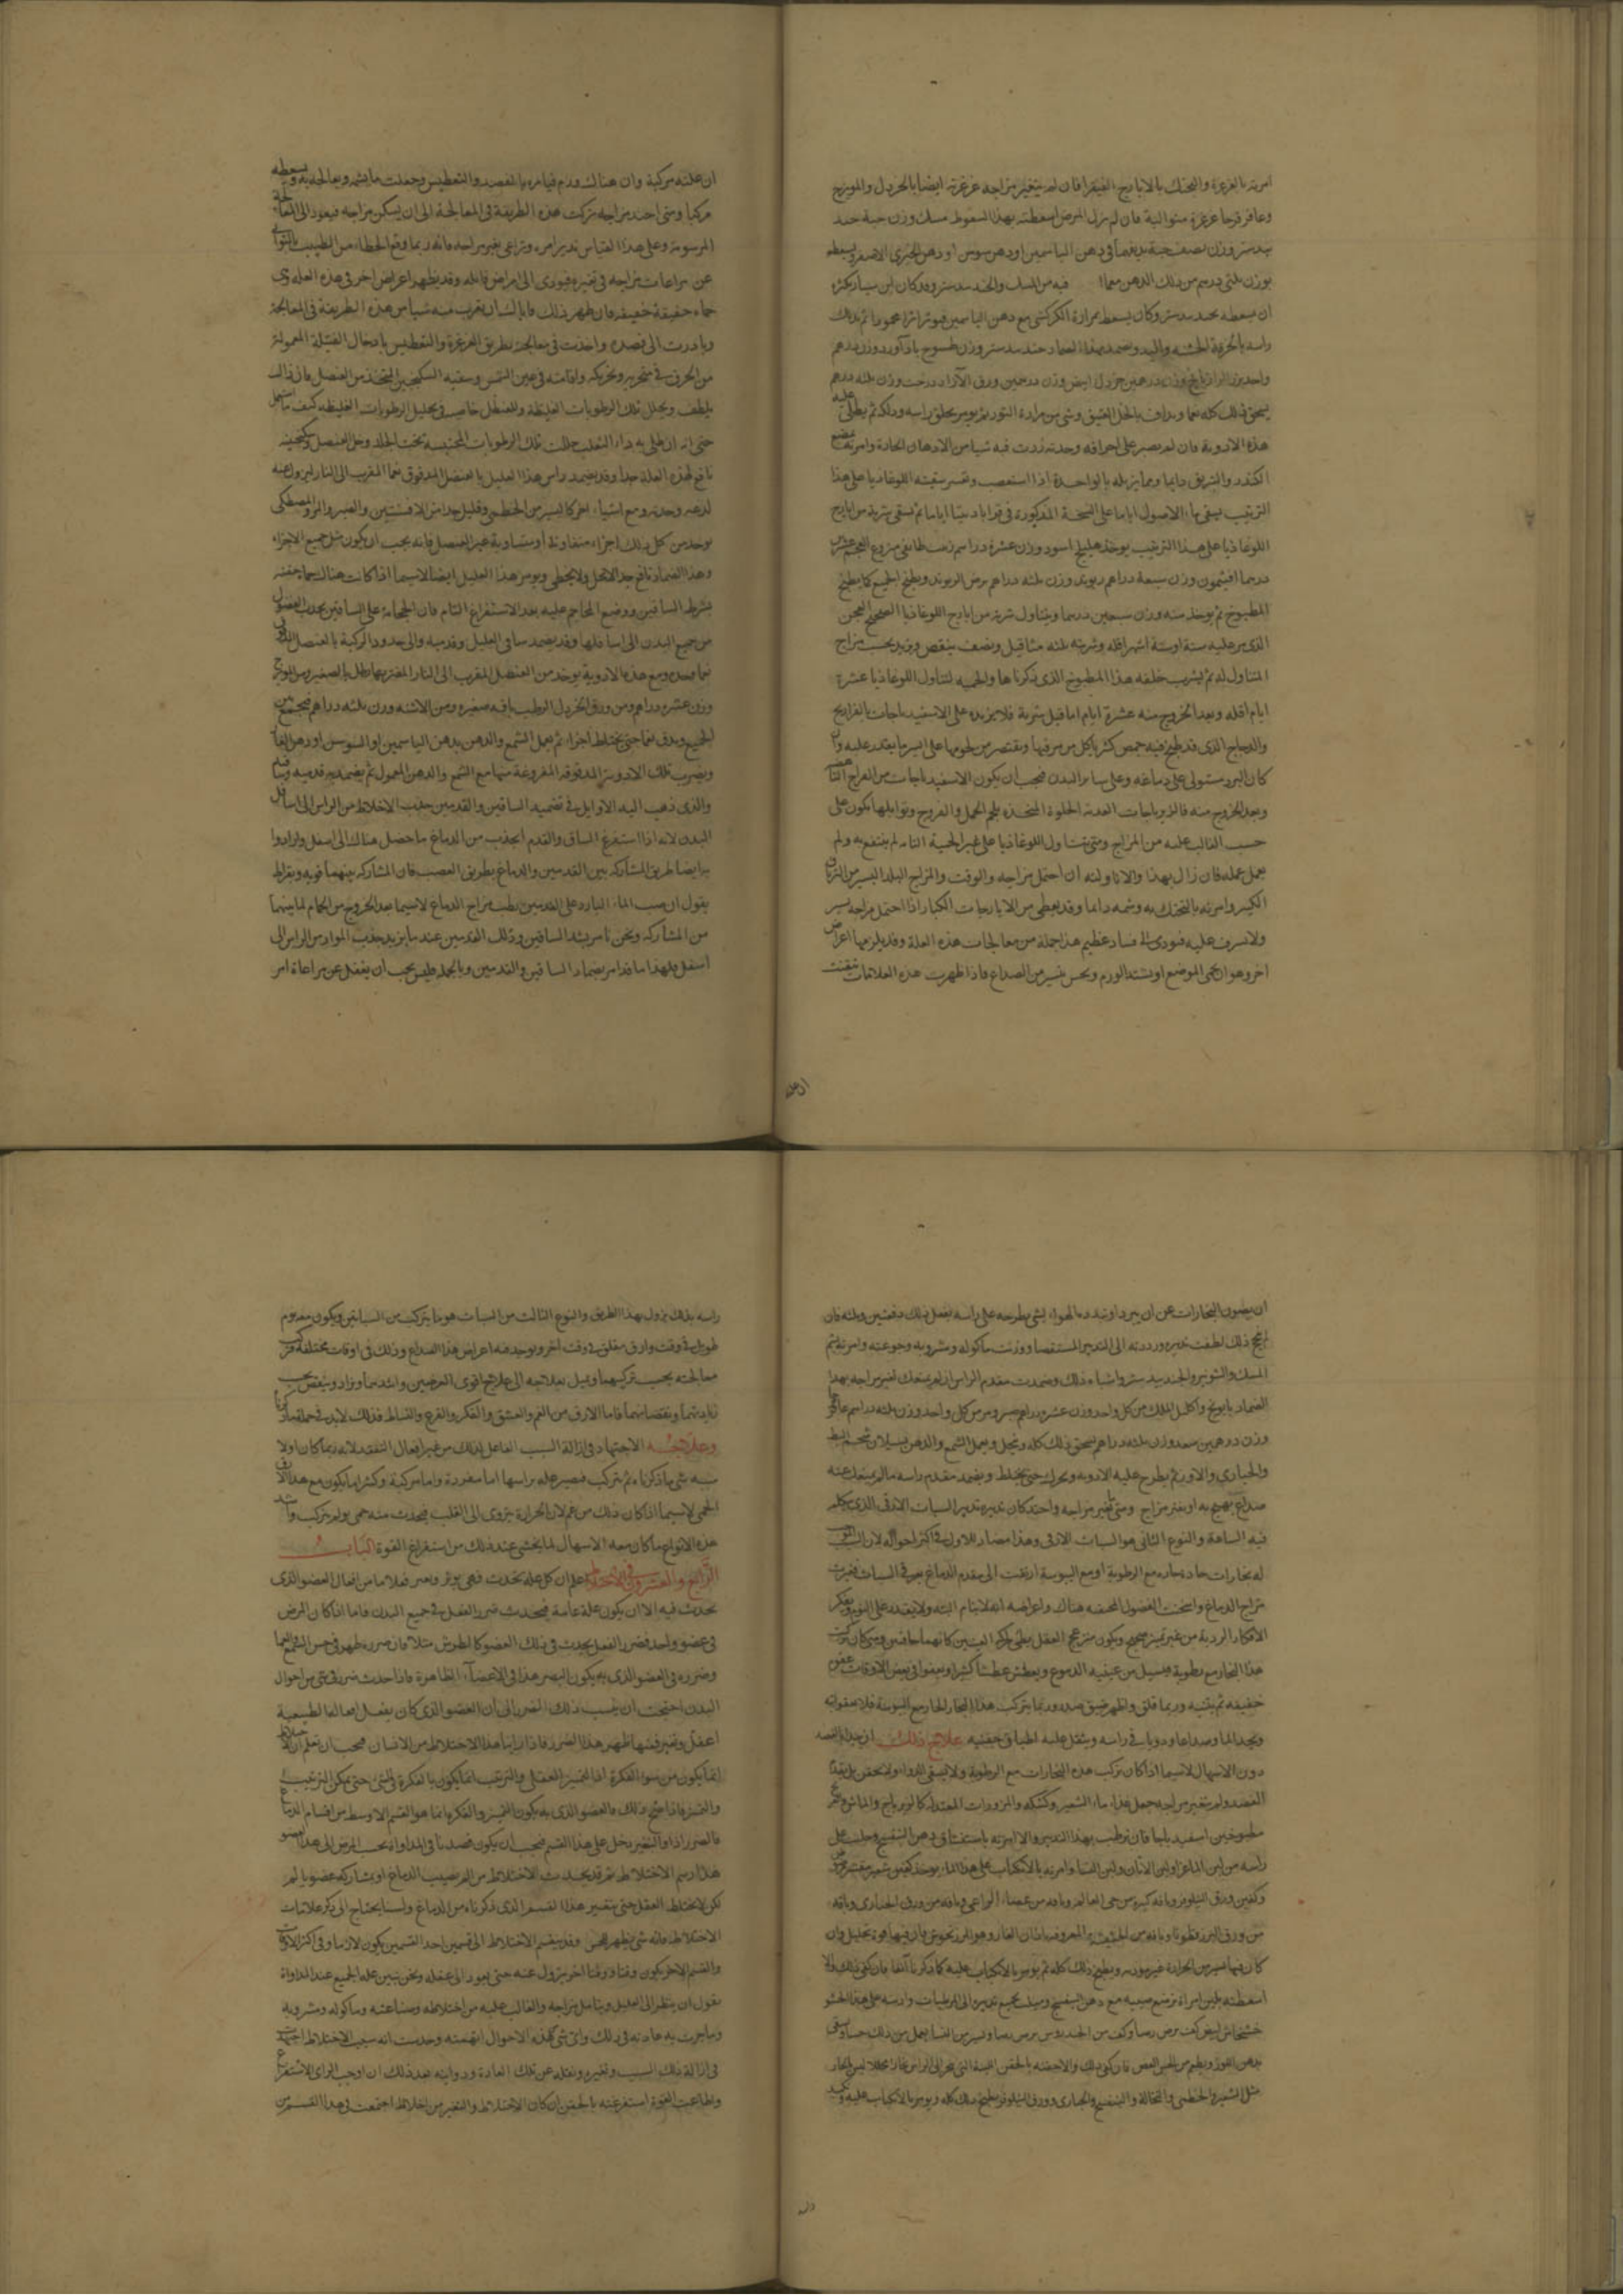 امرته بالغرغرة والتحنك بالايارج الفيقرا فان لم يتغير مزاجه غرغرته ايضا بالخردل والمويزج
وعاقرقرحا غرغرة متوالية فان لم يزل المرض اسعطته بهذا السعوط مسك وزن حبة جند
بيدستر وزن نصف حبة يديفهما في دهن الياسمين او دهن سوسن او دهن الخيري الاصفر ويسعطه
بوزن ثلثي درهم من ذلك الدهن فيه من المسك والجند بيدستر وقد كان ابن سيار يكره
ان يسعطه بجند بيدستر وكان يسعط بمرارة الكركي مع دهن الياسمين فيوثر اثرا محمودا ثم يدلك
راسه بالخرقة الخشنة وباليد ويضمد بهذا الضماد جند بيدستر وزن طسوج باداورد وزن درهم
هذه الادوية فان لم يصبر على احراقه وحدته زدت فيه شيا من الادهان الحادة وامرته بمضغ
الكندر والتريق دايما ومما يزيله بالواحدة اذا استصعب وتعسر سقيته اللوغاذيا على هذا
الترتيب يسقى ماء الاصول اياما على النسخة المذكورة في قراباديننا اياما ثم يسقى شربة من ايارج
اللوغاذيا على هذا الترتيب يوخذ هليلج اسود وزن عشرة دراهم زبيب طايفي منزوع العجم عشرين
درهما افتيمون وزن سبعة دراهم وزن ثلثه دراهم ويطبخ الجميع كما يطبخ
المطبوخ ثم يوخذ منه وزن سبعين درهما ويتناول شربة من ايارج اللوغاذيا الصحيح العجن
الذي مر عليه ستة اشهر اقله وشربته ثلثه مثاقيل ونصف ينقص ويزيد بحسب مزاج
المتناول له ثم يشرب خلفه هذا المطبوخ الذي ذكرناها والحمية لمتناول اللوغاذيا عشرة
ايام اقله وبعد الخروج منه عشرة ايام اما قبل شربه فلا يزيده على الاسفيدباجات بالفراريج
والدجاج الذي قد طبخ فيه حمص كثير ياكل من مرقها ويقتصر من لحومها على ايسر ما يقدر عليه وان
كان البرد مستولي على دماغه وعلى ساير البدن فيجب ان يكون الاسفيدباجات من الفراخ
وبعد الخروج منه فالزيرباجات العذبة الحلوة المتخذه بلحم الحمل والفروج وتوابلها يكون على
حسب الغالب عليه من المزاج ومتى تناول اللوغاذيا على غير الحمية التامه لم ينتفع به ولم
يعمل عمله فان زال بهذا والا ناولته ان احتمل مزاجه والوقت والمزاج البلد اليسير من الترياق
الكبير وامرته بالتحنك به وشمه دايما وقد يعطى من الايارجات الكبار اذا احتمل مزاجه يسير
ولا تسرف عليه فيودي الى فساد عظيم هذا جملة من معالجات هذه العلة وقد يلزمها اعراض
اخر وهو ان يحمى الموضع او يشتد الورم ويحس بيسير من الصداع فاذا ظهرت هذه العلامات تيقنت
ان علته مركبة وان هناك ورم فيامره بالفصد والتعطيس وجعلت ما يشمه ويعالجه به ويسعطه
مركبا ومتى احتد مزاجه تركت هذه الطريقة في المعالجة الى ان يسكن مزاجه فيعود الى المعالجة
المرسومة وعلى هذا القياس تدبر امره وتراعي تغير مزاجه فانه ربما وقع الخطا من الطبيب بالتواني
عن مراعات مزاجه في تغيره فيودي الى امراض قاتله وقد يظهر اعراض اخر في هذه العله وهي
حماه خفيفة فان ظهر ذلك فاياك ان تقرب منه شيا من هذه الطريقة في المعالجة
وبادرت الى فصده واخذت في معالجته بطريق الغرغرة والتعطيس بادخال الفتيلة المعمولة
من الخرق في منخريه وتحريكه واقامته في عين الشمس وسقيه السكنجبين المتخذ من العنصل فان ذلك
يلطف ويحلل تلك الرطوبات الغليظة وللعنصل خاصية في تحليل الرطوبات الغليظه كيف ما استعمل
حتى انه ان طلي به داء الثعلب حللت تلك الرطوبات المحتبسه تحت الجلد وخل العنصل وسكنجبينه
نافع لهذه العلة جدا وقد يضمد راس هذا العليل بالعنصل المدقوق نعما المقرب الى النار ليزول عنه
لدغه وحدته ومع اشياء اخر كاليسير من الخطمي وقليل جدا من الافسنتين والصبر والمر والمصطكى
يوخذ من كل ذلك اجزاء متفاوتة او متساوية غير العنصل فانه يجب ان يكون مثل جميع الاجزاء
وهذا الضماد نافع جدا لا يخل ولا يخطي ويومر هذا العليل ايضا لا سيما اذا كانت هناك حماء خفيفه
بشرط الساقين ووضع المحاجم عليه بعد الاستفراغ التام فان الحجامة على الساقين يجذب الفضول
من جميع البدن الى اسافلها وقد يضمد ساقي العليل وقدميه والى حدود الركبة بالعنصل المدقوق
نعما وحده ومع هذه الادوية يوخذ من العنصل المقرب الى النار
وزن عشرة دراهم ومن ورق الخردل الرطب باقه صغيره ومن الاشنه وزن ثلثه دراهم فيجمع بين
الجميع ويدق نعما حتى يختلط اجزاءه ثم يعمل الشمع والدهن بدهن الياسمين او السوسن او دهن الغار
ويضرب تلك الادوية المدقوقة المفروغة منها مع الشمع والدهن المعمول ثم يضمد به قدميه وساقيه
والذي ذهب اليه الاوايل في تضميد الساقين والقدمين جذب الاخلاط من الراس الى اسافل
البدن لانه اذا استفرغ الساق والقدم انجذب من الدماغ ما حصل هناك الى اسفل وارادوا
به ايضا طريق المشاركه بين القدمين والدماغ بطريق العصب فان المشاركه بينهما قويه وبقراط
يقول ان صب الماء البارد على القدمين يرطب مزاج الدماغ لا سيما بعد الخروج من الحمام لما بينهما
من المشاركه ونحن نامر بشد الساقين وذلك القدمين عند ما يزيد جذب المواد من الراس الى
اسفل فلهذا ما قد امر بضماد الساقين والقدمين وبالجملة فليس يجب ان يغفل عن مراعاة امر
ان يصون البخارات عن ان يبرد او تتبدد بالهواء بشي يطرحه على راسه يفعل ذلك دفعتين وثلثه فان
لم ينجح ذلك لطفت تدبيره ورددته الى التدبير المستقصا ووزنت ماكوله ومشروبه وجوعته وامرته بشم
المسك والشونيز والجندبيدستر واشباه ذلك وضمدت مقدم الراس ان لم يمنعك تغير مزاجه بهذا
الضماد بابونج واكليل الملك من كل واحد وزن عشره دراهم صبر ومر من كل واحد وزن ثلثه دراهم عاقرقرحا
وزن درهمين سعد وزن ثلثه دراهم يسحق ذلك كله وينخل ويعمل الشمع والدهن بسيلان شحم البط
والحباري والاوز ثم يطرح عليه الادوية ويحرك حتى يختلط ويضمد مقدم راسه ما لم يمنعك عنه
صداع يهيج به او يتغير مزاج ومتى تغير مزاجه واحتد كان تدبيره تدبير السبات الارقي الذي نتكلم
فيه الساعة والنوع الثاني هو السبات الارقي وهذا مضاد للاول في اكثر احواله لان السبب
له بخارات حادة حاره مع الرطوبة او مع اليبوسة ارتقت الى مقدم الدماغ
مزاج الدماغ واسخنت الفضول المحتقنه هناك واعراضه انه لا ينام البته ولا يقدر على النوم ويفكر
الافكار الردية من غير تمييز صحيح ويكون منزعج العقل بطي حركة العينين كانهما جافين ومتى كان تركيب
هذا البخار مع رطوبة فيسيل من عينيه الدموع ويعطش عطشا كثيرا ويغفوا في بعض الاوقات غفوة
خفيفه ثم ينتبه وربما قلق واظهر ضيق صدر وربما يتركب هذا البخار الحار مع اليبوسة فلا يغفو البته
ويجد الما وصداعا ودويا في راسه ويثقل عليه اطباق جفنيه علاج ذلك
دون الاسهال لا سيما اذا كان تركب هذه البخارات مع الرطوبة ولا يسقى الدواء ولا يحقن
الفصد ولم يتغير مزاجه جعل غذاه ماء الشعير وكشكه والمزورات المعتدله كالزيرباج والماش والقرع
مطبوخين اسفيدباجا فان ترطب بهذا التدبير والا امرته باستنشاق دهن البنفسج وحلبت على
راسه من لبن الماعز او لبن الاتان ولبن النسا وامرته بالانكباب على هذا الماء يوخذ كفين شعير مقشر مرضوض
وكفين ورق النيلوفر وباقه كبيره من حي العالم وباقه من عصا الراعي وباقه من ورق الخباري وباقه
من ورق البزرقطونا وباقه من الحشيشة المعروفة باذان الفار وهو المرزنجوش فان فيها قوة تحليل وان
كان فيها يسير من الحرارة غير موذيه ويطبخ ذلك كله ثم يومر بالانكباب عليه كما ذكرنا آنفا فان كفى ذلك والا
اسعطته بلبن امراة ترضع صبيه مع دهن البنفسج وميلت بجميع تدبيره الى المرطبات
خشخاش ابيض كف
بدهن اللوز ويطعم من الخس الغض فان كفى ذلك والا حقنته بالحقن اللينة
مثل الشعير والخطمي والنخالة والبنفسج والخباري وورق النيلوفر يطبخ ذلك كله ويومر بالانكباب عليه
راسه بذلك يزول بهذا الطريق والنوع الثالث من السبات هو ما يتركب من السباتين ويكون معه نوم
طويل في وقت وارق مقلق في وقت اخر ويوجد فيه اعراض هذا الصداع وذلك في اوقات مختلفة
معالجته بحسب تركيبهما ويميل بعلاجه الى علاج اقوى المرضين واشدهما ويزاد وينقص بحسب
زيادتهما ونقصانهما فاما الارق من الغم والعشق والفكر والفزع والنشاط فذلك لا بد في جملة ما ذكرنا
وعلاجه الاجتهاد في ازالة السبب الفاعل لذلك من غير اغفال التفقد لانه ربما كان اولا
سببه شي ما ذكرناه ثم يتركب فيصير علة براسها اما مفردة واما مركبة وكثيرا ما يكون مع هذا الارق
الحمى لا سيما اذا كان ذلك من غم لان الحرارة ينزوي الى القلب فيحدث منه حمى يوم يتركب
هذه الانواع ما كان معه الاسهال لما يخشى عند ذلك من استفراغ القوة الباب
الرابع والعشرون في الاختلاط اعلم ان كل علة تحدث فهي يوثر وتضر فعلا ما من افعال العضو الذي
تحدث فيه الا ان يكون علة عامة فيحدث ضرر الفعل في جميع البدن فاما اذا كان المرض
في عضو واحد فضرر الفعل يحدث في ذلك العضو كالطرش مثلا فان ضرره ظهر في حس السمع والعمى
وضرره في العضو الذي به يكون البصر هذا في الاعضاء الظاهرة فاذا حدث ضرر في شي من احوال
البدن احتجت ان ينسب ذلك الضرر الى ان العضو الذي كان يفعل افعالها الطبيعية
اعتل وتغير فمنها ظهر هذا الضرر فاذا راينا هذا الاختلاط من الانسان فيجب ان نعلم ان الاختلاط
انما يكون من سوء الفكرة اذ التمييز العقلي والترتيب انما يكون بالفكرة والتثبت حتى يمكن الترتيب
والتمييز فاذا صح ذلك فالعضو الذي به يكون التمييز والفكر انما هو القسم الاوسط من اقسام الدماغ
فالضرر اذا والتغير دخل على هذا القسم فيجب ان يكون قصدنا في المداواة بحسب المرض الى هذا العضو
هذا رسم الاختلاط ثم قد يحدث الاختلاط من الم يصيب الدماغ او بمشاركة عضو يالم
لكن لا يختلط العقل حتى يتغير هذا القسم الذي ذكرناه من الدماغ ولسنا يحتاج الى ذكر علامات
الاختلاط فانه شي يظهر للحس وقد ينقسم الاختلاط الى قسمين احد القسمين يكون لازما وفي اكثر الاوقات
والقسم الاخر يكون وقتا ووقتا اخر يزول عنه حتى يعود الى عقله ونحن نبين علة الجميع عند المداواة
نقول ان ينظر الى العليل ويتامل مزاجه والغالب عليه من اختلاطه وصناعته وماكوله ومشروبه
وما جرت به عادته في ذلك واي شي من هذه الاحوال اتهمته وحدست انه سبب الاختلاط اجتهدت
في ازالة ذلك السبب وتغيره ونقله عن تلك العادة وداويته بعد ذلك ان اوجب الراي الاستفراغ
واطاعت القوة استفرغته بالحقن ان كان الاختلاط والتغير من اخلاط اجتمعت في هذا القسم من